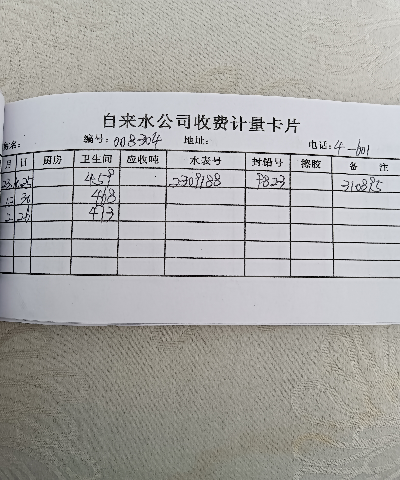 自来水公司收费计量卡片
姓名: 编号: 008-304 地址: 电话: 4-601
月 日 厨房 卫生间 应收吨 水表号 封铅号 擦胶 备 注
25 459 2309188 9823 310895
12 30 468
2 26 473